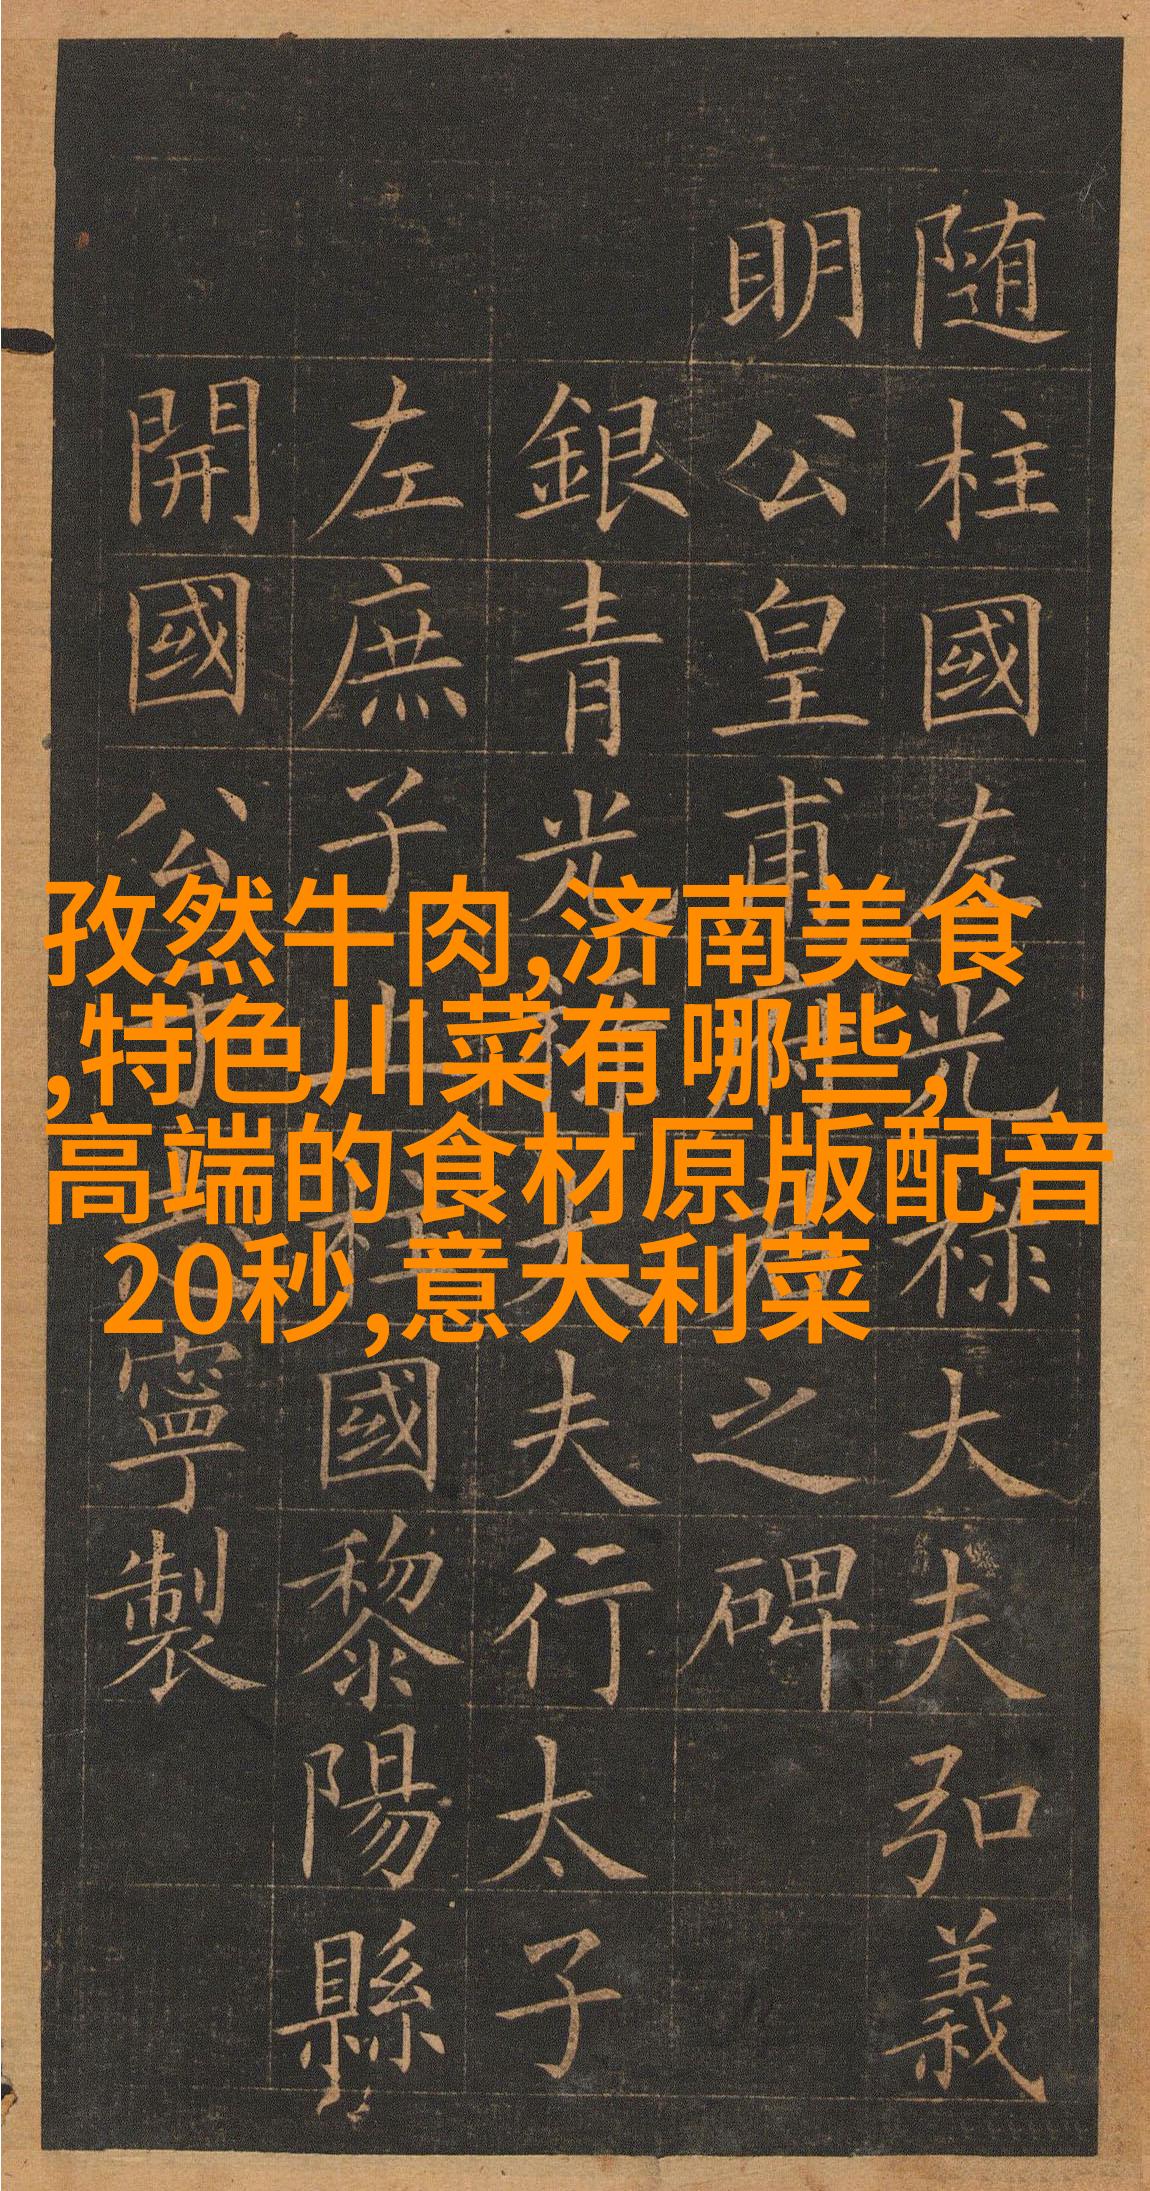 随柱國左光禄大夫弘義
明公皇甫府君之碑
銀青光禄大夫行太子
左庶子上柱國黎陽縣
開國公于志寧製
孜然牛肉,济南美食
,特色川菜有哪些,
高端的食材原版配音
20秒,意大利菜